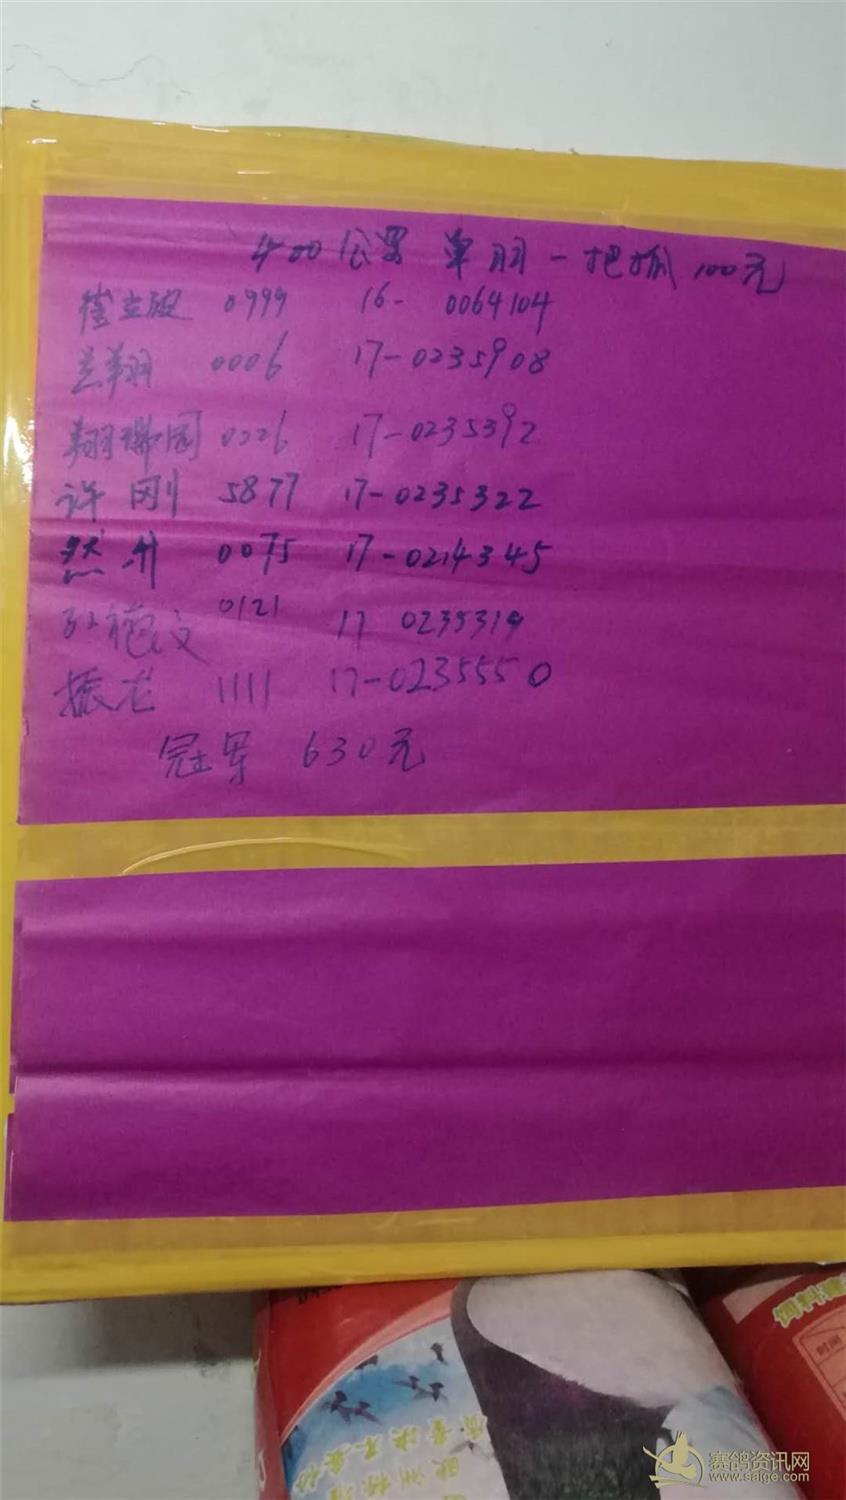 400公里 单羽一把抓 100元
崔立超 0999 16- 0064104
兰翔 0006 17-0235908
翔瑞园 0226 17-0235392
许刚 5877 17-0235322
然升 0075 17-0214345
0121 17 0235319
振龙 1111 17-0235550
冠军 630元
饲料
时间
质量决不
欧洲标准
赛鸽资讯网
www.saige.com